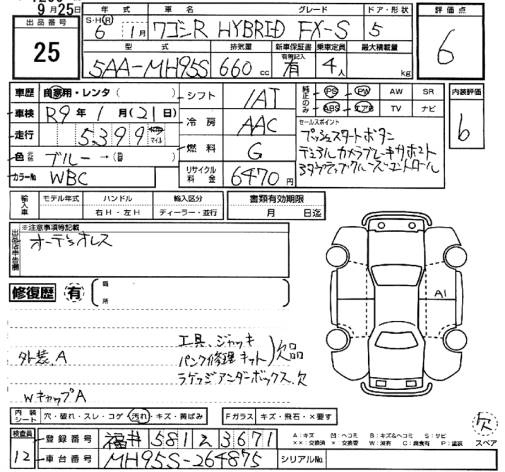 9月25日
出品番号
25
年式 車名 グレード ドア・形状
S・H・R 6年 1月 ワゴンR HYBRID FX-S 5
型式 排気量 新車保証書 乗車定員 最大積載量
5AA-MH95S 660cc 有 4人 kg
評価点
6
車歴 自家用・レンタ( )
シフト IAT
純正のみ PS PW AW SR
ABS エアB TV ナビ
内装評価
b
車検 R9年 1月(21)日
冷房 AAC
セールスポイント
プッシュスタートボタン
デュアルカメラブレーキサポート
走行 5399
燃料 G
色 ブルー→( )
カラーNo WBC
リサイクル料金 6470円
輸入車 モデル年式 ハンドル 輸入区分
右H・左H ディーラー・並行
書類有効期限
月 日迄
※注意事項等記載
オーディオレス
修復歴 有
A1
外装.A
工具、ジャッキ
パンク修理キット 欠品
ラゲッジアンダーボックス.欠
WキャップA
内装シート 穴・破れ・スレ・コゲ・汚れ・キズ・黄ばみ
Fガラス キズ・飛石・×要す
欠
スペア
検査員 12
登録番号 福井 581 え 3671
車台番号 MH95S-264875 シリアルNo.